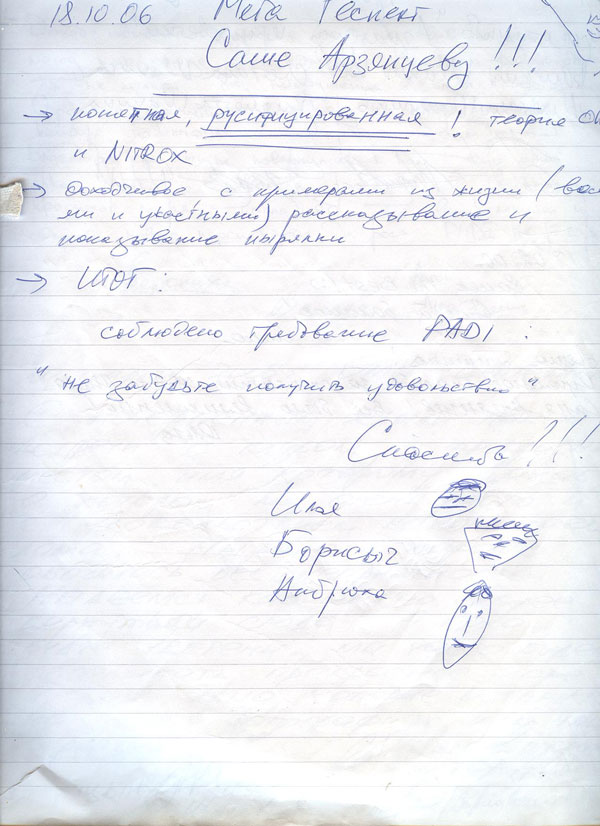 18.10.06 Мега Респект
Саше Арзянцеву!!!
→ понятная, русифицированная! теория
и NITROX
→ Доходчивое с примерами из жизни (
ми и участными) рассказывание и
показывание нырялки
→ ИТОГ:
соблюдено требование PADI:
"не забудьте получить удовольствие"
Спасибо!!!
Илья
Борисыч